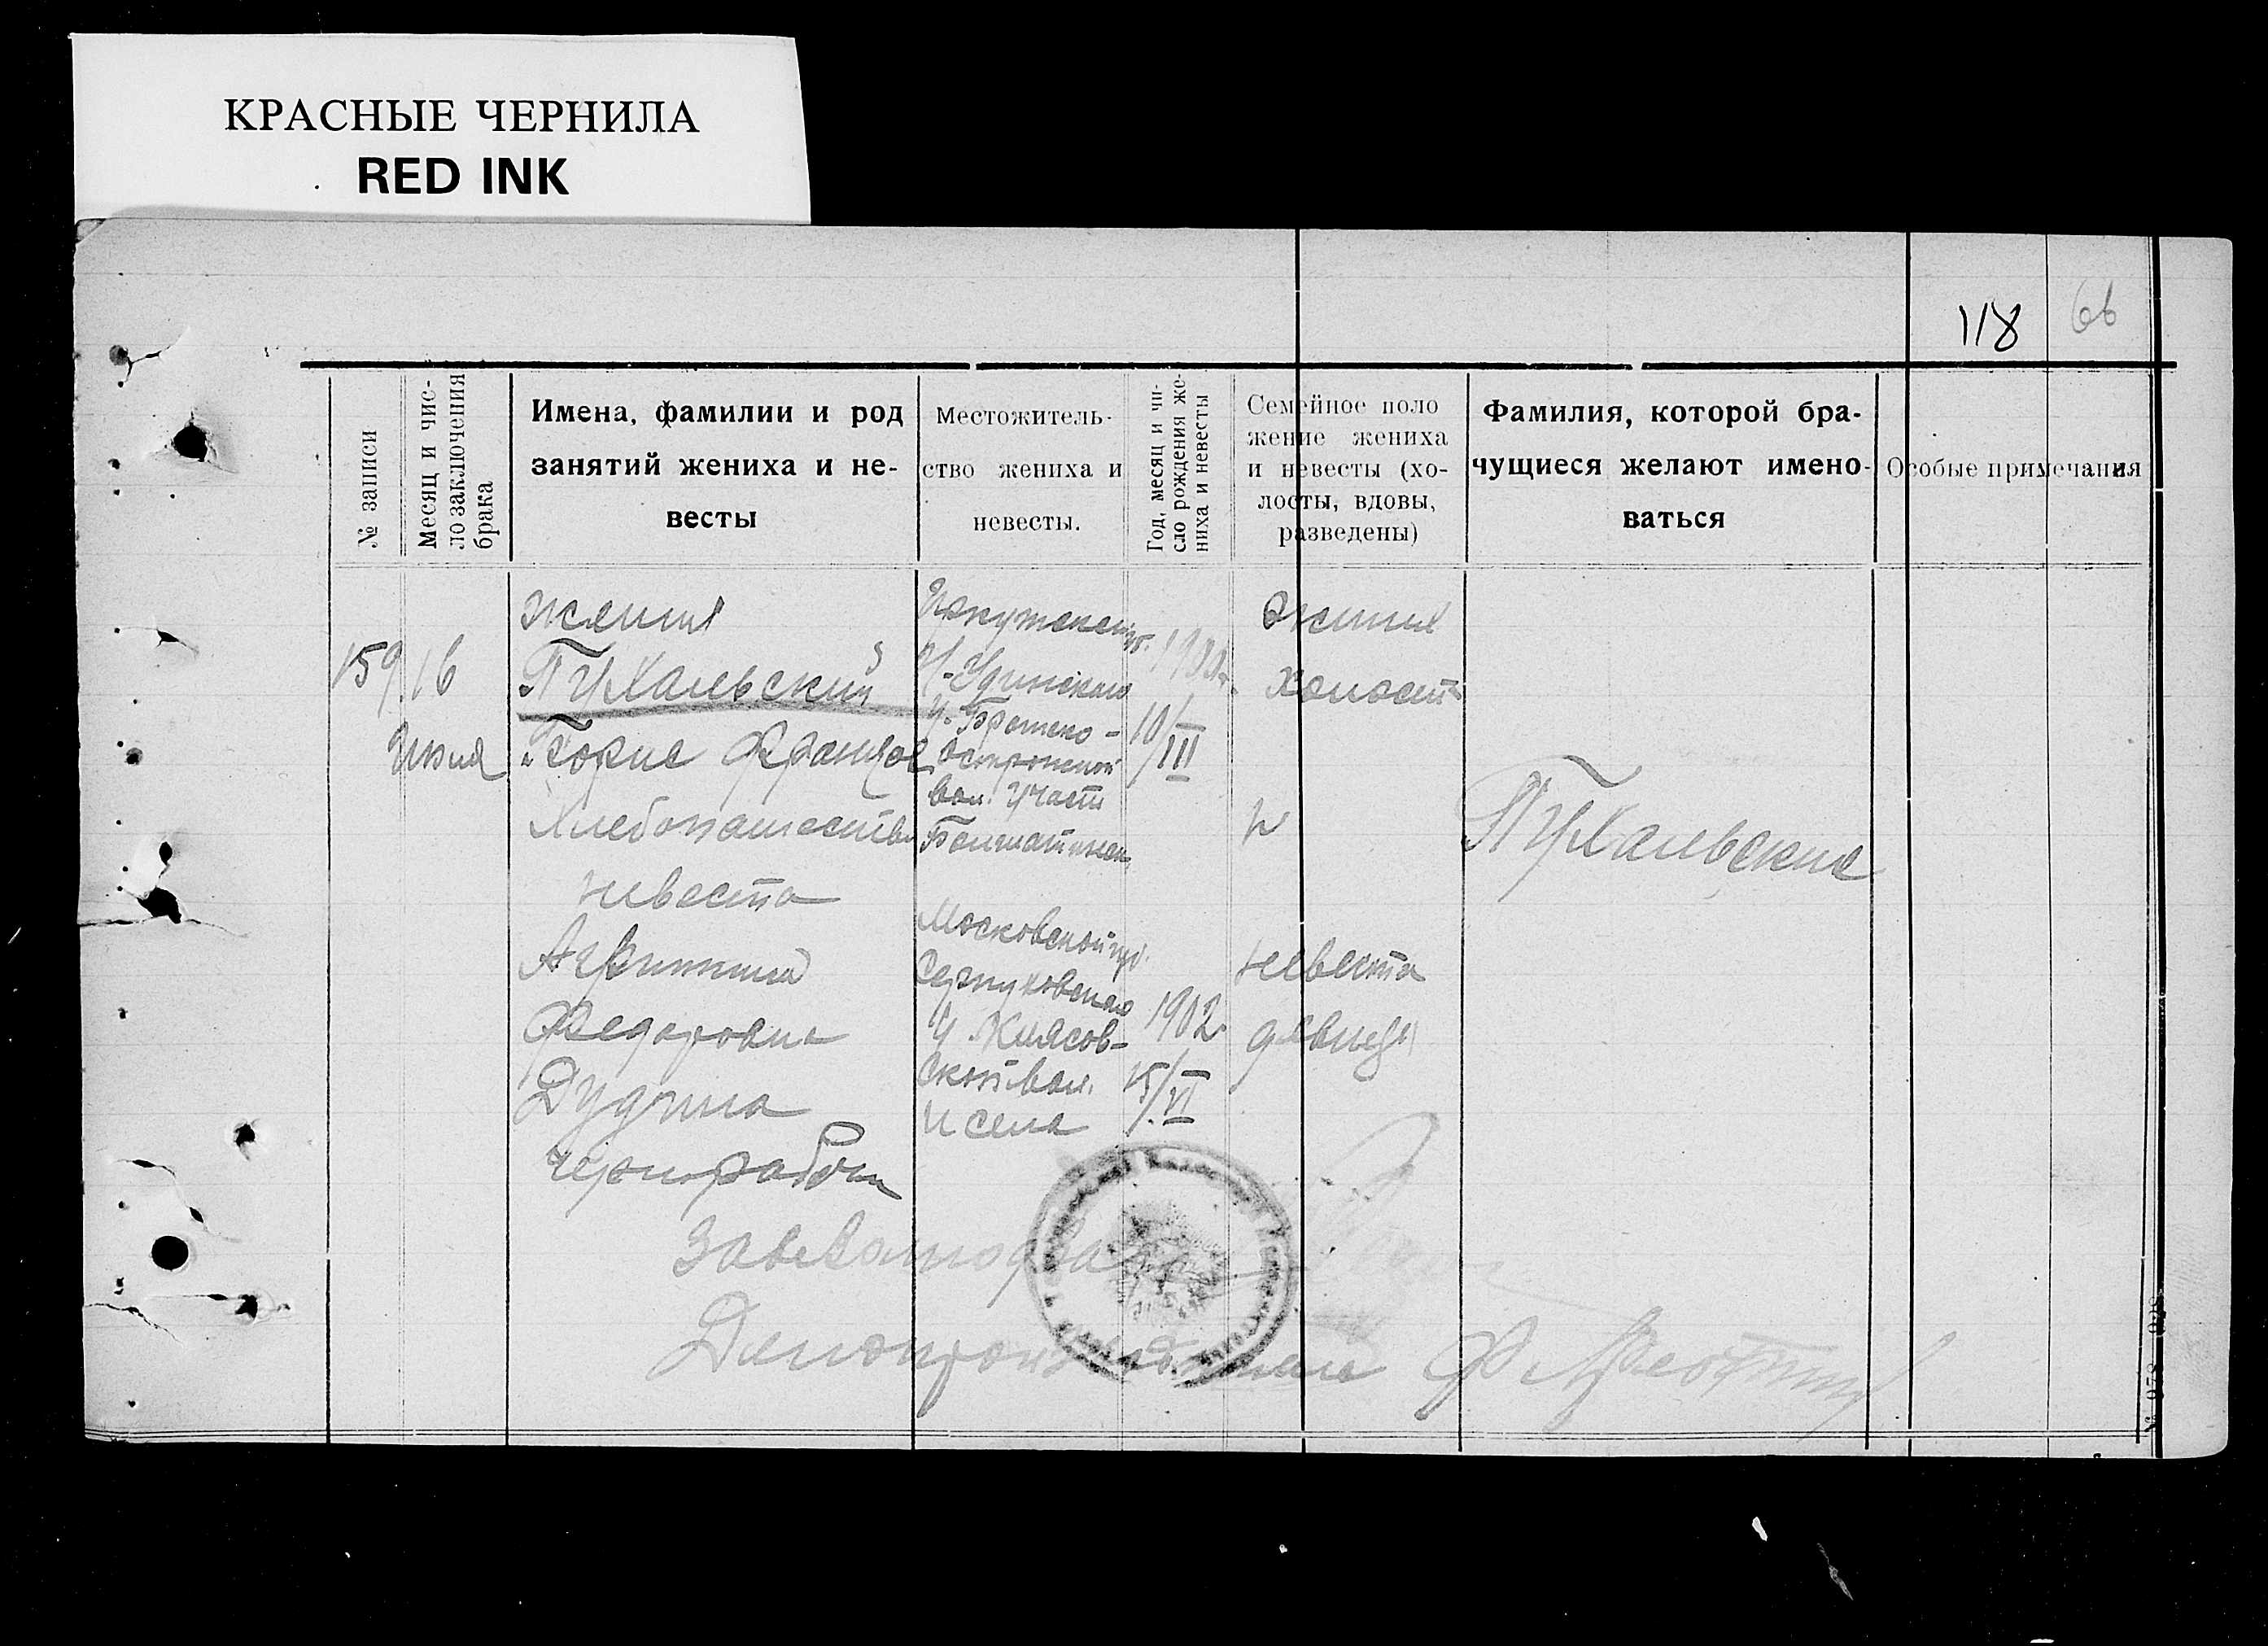 КРАСНЫЕ ЧЕРНИЛА
RED INK
118
66
№ записи
Месяц и чис-
ло заключения
брака
Имена, фамилии и род
занятий жениха и не-
весты
Местожитель-
ство жениха и
невесты.
Год, месяц и чи-
сло рождения же-
ниха и невесты
Семейное поло
жение жениха
и невесты (хо-
лосты, вдовы,
разведены)
Фамилия, которой бра-
чущиеся желают имено-
ваться
Особые примечания
159.
16
Июня
жених
Пухальский
Борис Францов
Хлебопашество
невеста
Агрипина
Федоровна
Дудина
Чернорабоч
Иркутской гу.
Н-Удинского
у. Братско-
Острожской
вол. участ
Московской гу.
Серпуховского
у. Хиясов-
ской вол.
и села
1900г.
10/III
1902.
15/VI
жених
холост
и
невеста
девица
Пухальские
Делопроизводитель